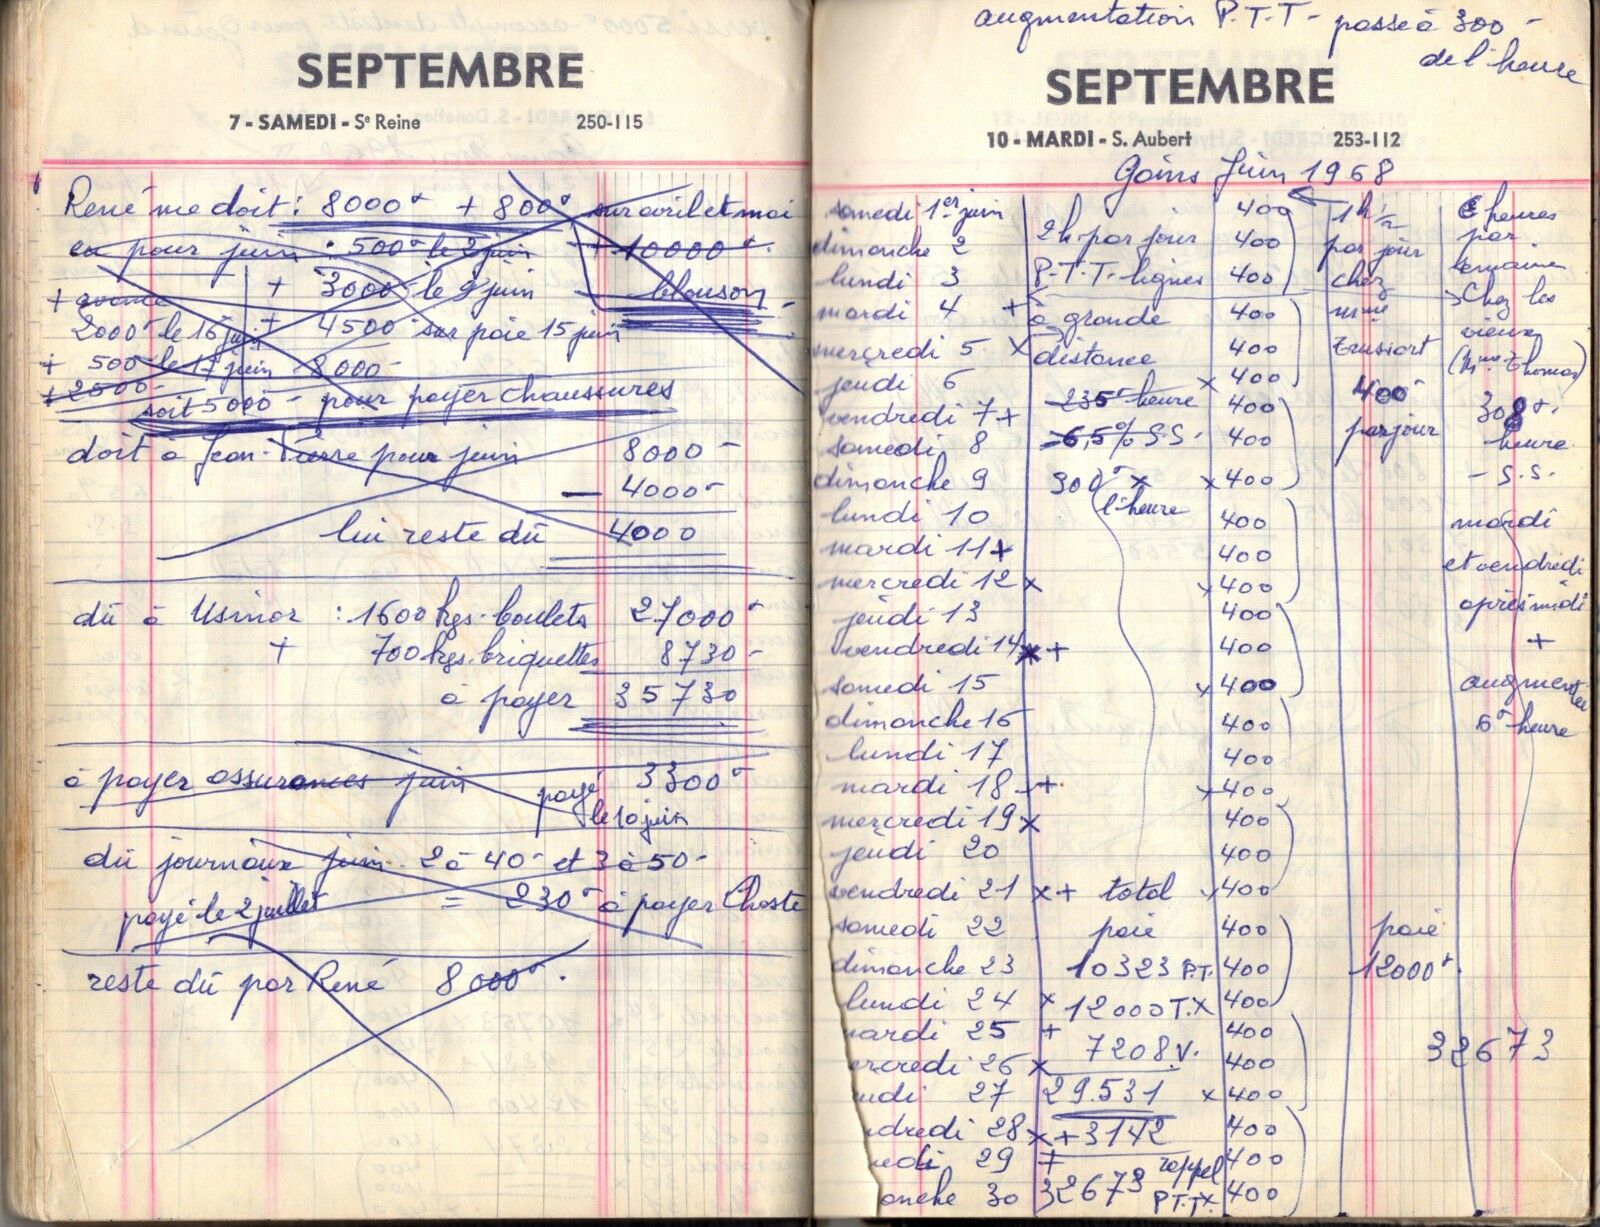 SEPTEMBRE
7 - SAMEDI - Se Reine 250-115
René me doit : 8000 + 800 sur avril et mai
et pour juin : 500 le 2 juin + 10000
+ avance + 3000 le 9 juin blouson
2000 le 16 juin + 4500 sur paie 15 juin
+ 500 le 17 juin 8000
+ 2500
soit 5000 pour payer chaussures
doit à Jean-Pierre pour juin 8000
- 4000
lui reste dû 4000
dû à Usinor : 1600 kgs. boulets 27000
+ 700 kgs. briquettes 8730
à payer 35730
à payer assurances juin payé 3300
le 10 juin
dû journaux juin 2 à 40 et 3 à 50
payé le 2 juillet = 230 à payer Choste
reste dû par René 8000
augmentation P.T.T - passe à 300 -
de l'heure
SEPTEMBRE
10 - MARDI - S. Aubert 253-112
Gains Juin 1968
samedi 1er juin 400 1h 1/2 6 heures
dimanche 2 2h. par jour 400 par jour par
lundi 3 P.T.T. lignes 400 chez semaine
mardi 4 + à grande 400 Chez les
mercredi 5 x distance 400 Trussart vieux
jeudi 6 235 heure x 400 400 (Mme Thomas)
vendredi 7 + 6,5% S.S. 400 par jour 308
samedi 8 400 heure
dimanche 9 300 x x 400 - S.S.
l'heure
lundi 10 400 mardi
mardi 11 + 400 et vendredi
mercredi 12 x x 400 après midi
jeudi 13 400 +
vendredi 14 x + 400
samedi 15 x 400 augmentée
dimanche 16 400 6 heure
lundi 17 400
mardi 18 + x 400
mercredi 19 x 400
jeudi 20 400
vendredi 21 x + total x 400
samedi 22 paie 400 paie
dimanche 23 10323 P.T. 400 12000
lundi 24 x 12000 T. x 400
mardi 25 + 7208 V. 400 32673
ercredi 26 x 400
udi 27 29.531 x 400
ndredi 28 x + 3142 400
edi 29 + rappel 400
anche 30 32673 P.T.T x 400